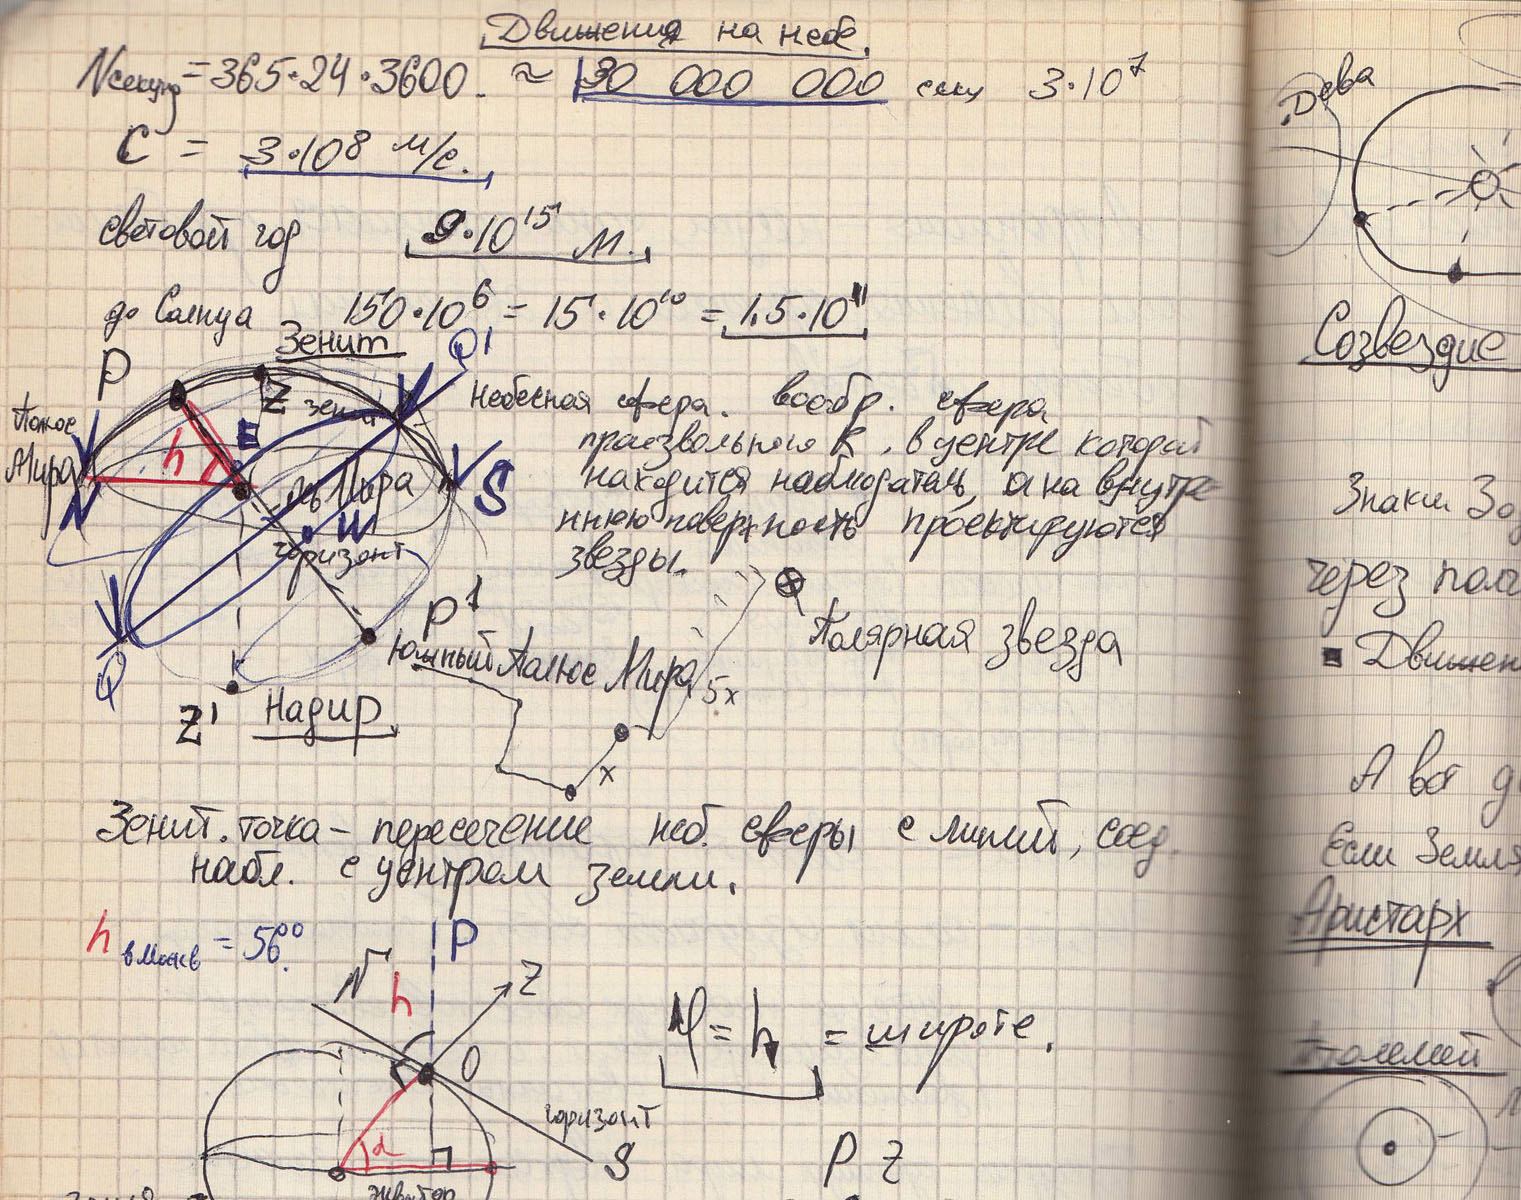 Движения на небе.
Nсекунд = 365·24·3600. ≈ 30 000 000 сек 3·10⁷
C = 3·10⁸ м/с.
световой год 9·10¹⁵ м.
до Солнца 150·10⁶ = 15·10¹⁰ = 1.5·10¹¹
Зенит
P
Q'
Z зенит
Полюс
Мира
N
h
E
ось Мира
W
горизонт
S
Небесная сфера. вообр. сфера
произвольного R, в центре которой
находится наблюдатель, а на внутре-
ннюю поверхность проектируются
звезды.
P'
Южный Полюс Мира
Полярная звезда
5x
x
Q
Z'
Надир
Зенит. точка – пересечение неб. сферы с линией, соед.
набл. с центром земли.
h в Москв = 56°.
P
N
h
Z
O
горизонт
S
α
экватор
φ = h = широте.
P Z
Дева
Созвездие
Знаки Зо
через пол
Движен
А вот
Если Земля
Аристарх
Птолемей